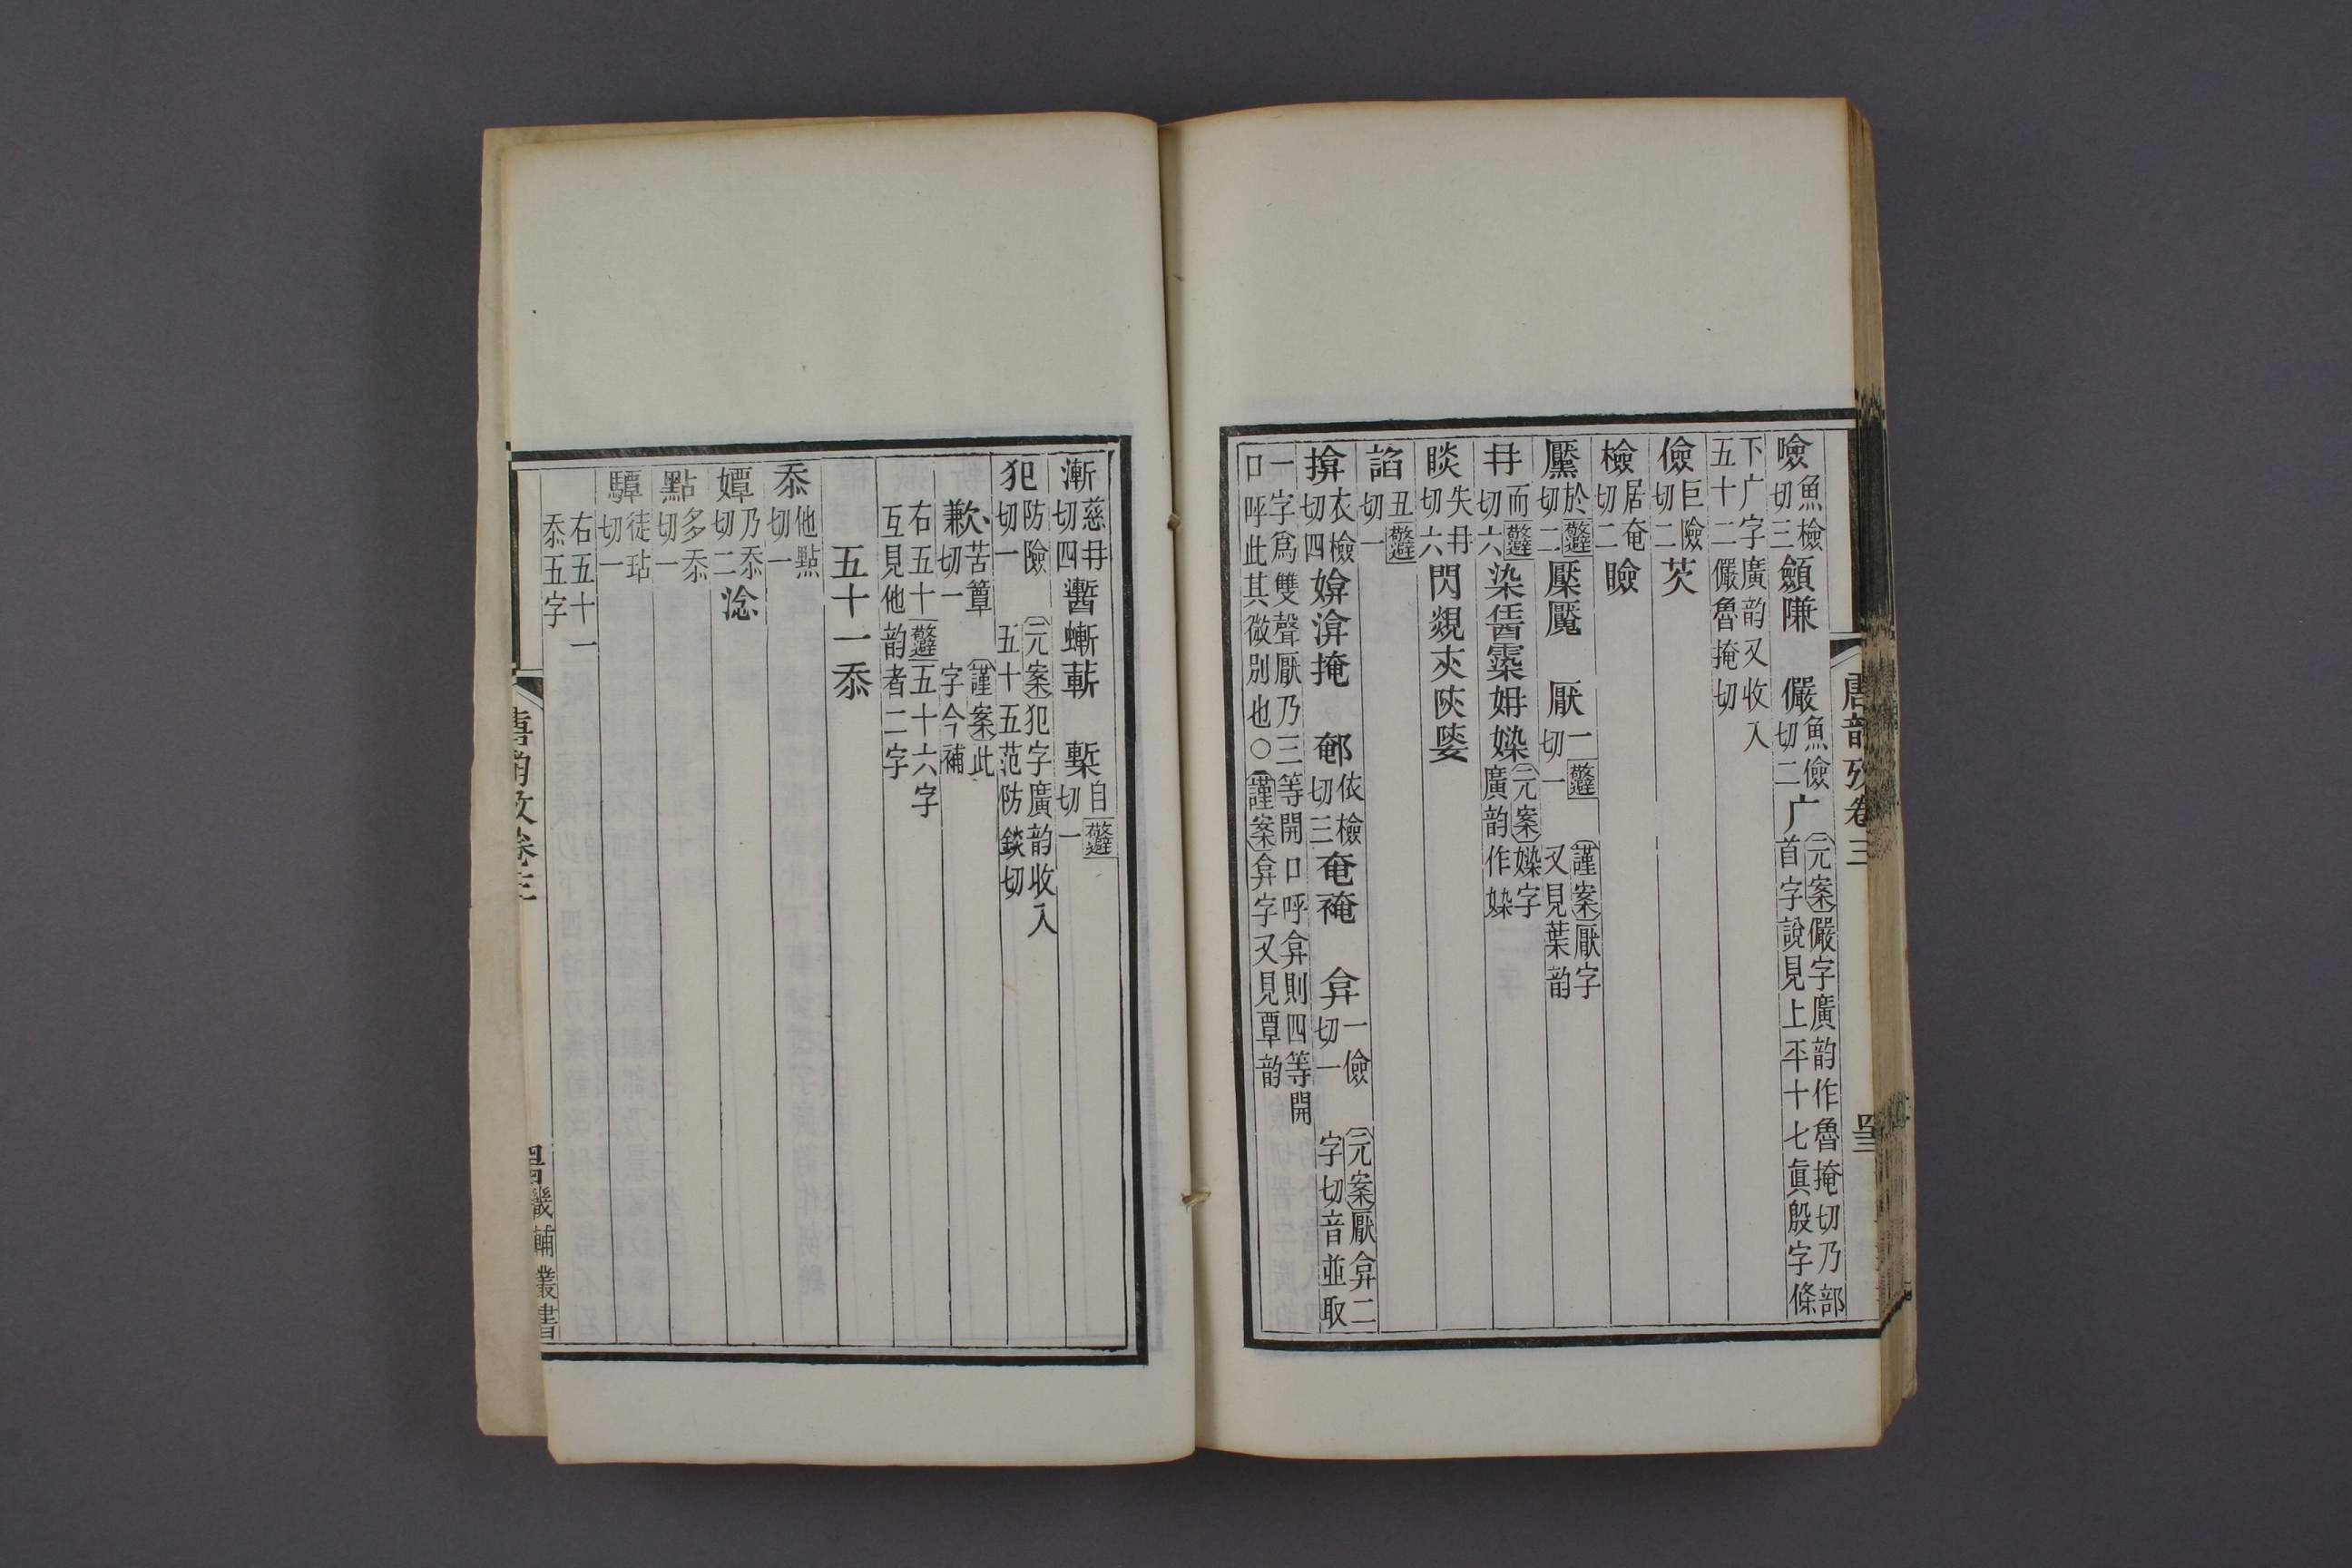 唐韵攷卷三
噞魚檢切三顩隒　儼魚儉切二广元案儼字廣韵作魯掩切乃部首字說見上平十七眞殷字條
下广字廣韵又收入五十二儼魯掩切
儉巨險切二芡
檢居奄切二瞼
黶於琰切二檿魘　厭一琰切一　謹案厭字又見葉韵
冄而琰切六染橬霃姌媣元案媣字廣韵作㛁
睒失冄切六閃覢夾陝
諂丑琰切一
揜衣檢切四媕渰掩　郁依檢切三奄裺　弇一儉切一　元案厭弇二字切音並取
一字爲雙聲厭乃三等開口呼弇則四等開口呼此其微別也○謹案弇字又見覃韵
漸慈冄切四蹔螹蔪　槧自琰切一
犯防險切一　元案犯字廣韵收入五十五范防錽切
歉苦簟切一　謹案此字今補
右五十琰五十六字互見他韵者二字
五十一忝
忝他點切一
嬗乃忝切二淰
點多忝切一
驔徒玷切一
右五十一忝五字
唐韵攷卷三
畿輔叢書